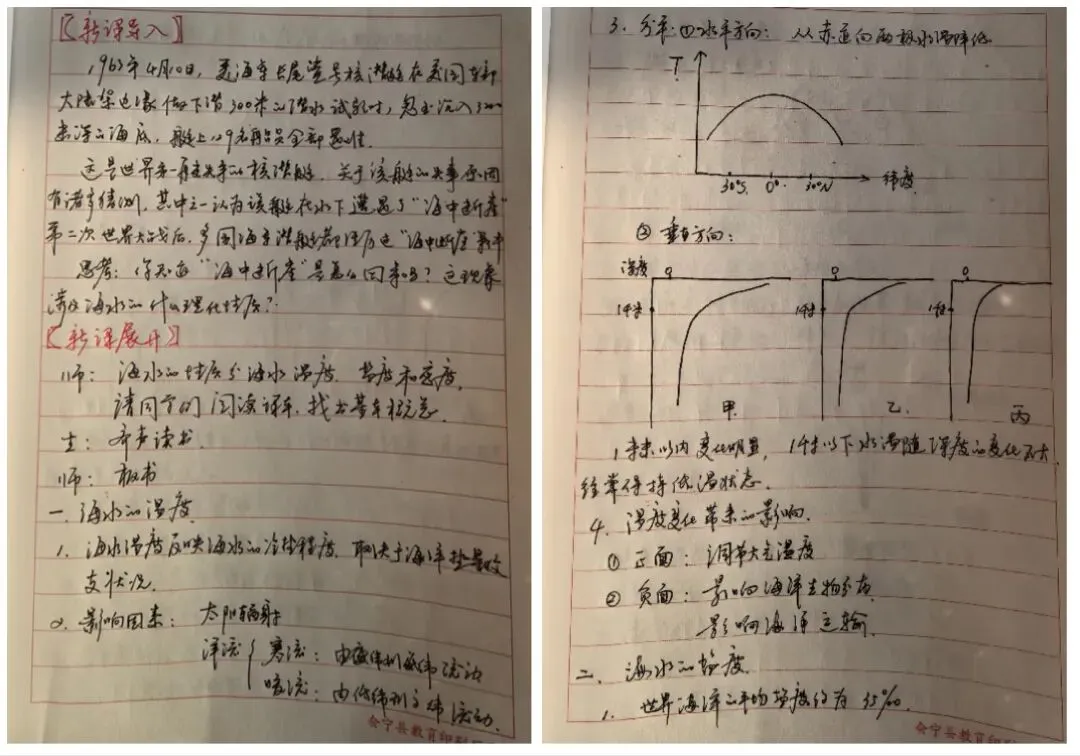 【新课导入】
1963年4月10日，美海军长尾鲨号核潜艇在美国东部
大陆架边缘做下潜300米的潜水试验时，忽然沉入
米深的海底，艇上129名船员全部遇难
这是世界第一艘失事的核潜艇，关于该艇的失事原因
有诸多猜测，其中之一认为该艇在水下遭遇了“海中断崖”
第二次世界大战后，多国海军潜艇都经历过“海中断崖”
思考：你知道“海中断崖”是怎么回事吗？这现象
涉及海水的什么理化性质？
【新课展开】
师：海水的性质分海水温度、盐度和密度，
请同学们阅读课本，找出基本概念
生：齐声读书
师：板书
一、海水的温度
1、海水温度反映海水的冷热程度，取决于海洋热量收
支状况。
2、影响因素：太阳辐射
洋流{寒流：由高纬到低纬流动
暖流：由低纬到高纬流动
会宁县教育印刷
3、分布：①水平方向：从赤道向两极水温降低
T
30°S 0° 30°N 纬度
②垂直方向：
深度 0 0 0
1千米 1千米 1千米
甲 乙 丙
1千米以内变化明显，1千米以下水温随深度的变化不大
经常保持低温状态。
4、温度变化带来的影响
①正面：调节大气温度
②负面：影响海洋生物分布
影响海洋运输
二、海水的盐度
1、世界海洋的平均盐度约为35‰
会宁县教育印刷